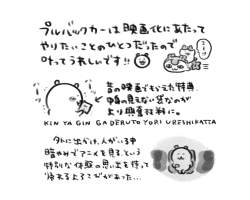 プルバックカーは映画化にあたって
やりたいことのひとつだったので
叶ってうれしいです!!
昔の映画でもらえた特典
中身の見えない袋なのが
より興奮材料に。
KIN YA GIN GA DERUTO YORI URESHIKATTA
外に出かけ、人がいる中
暗やみでアニメを見るという
特別な体験の思い出を持って
帰れるよろこびがあった…